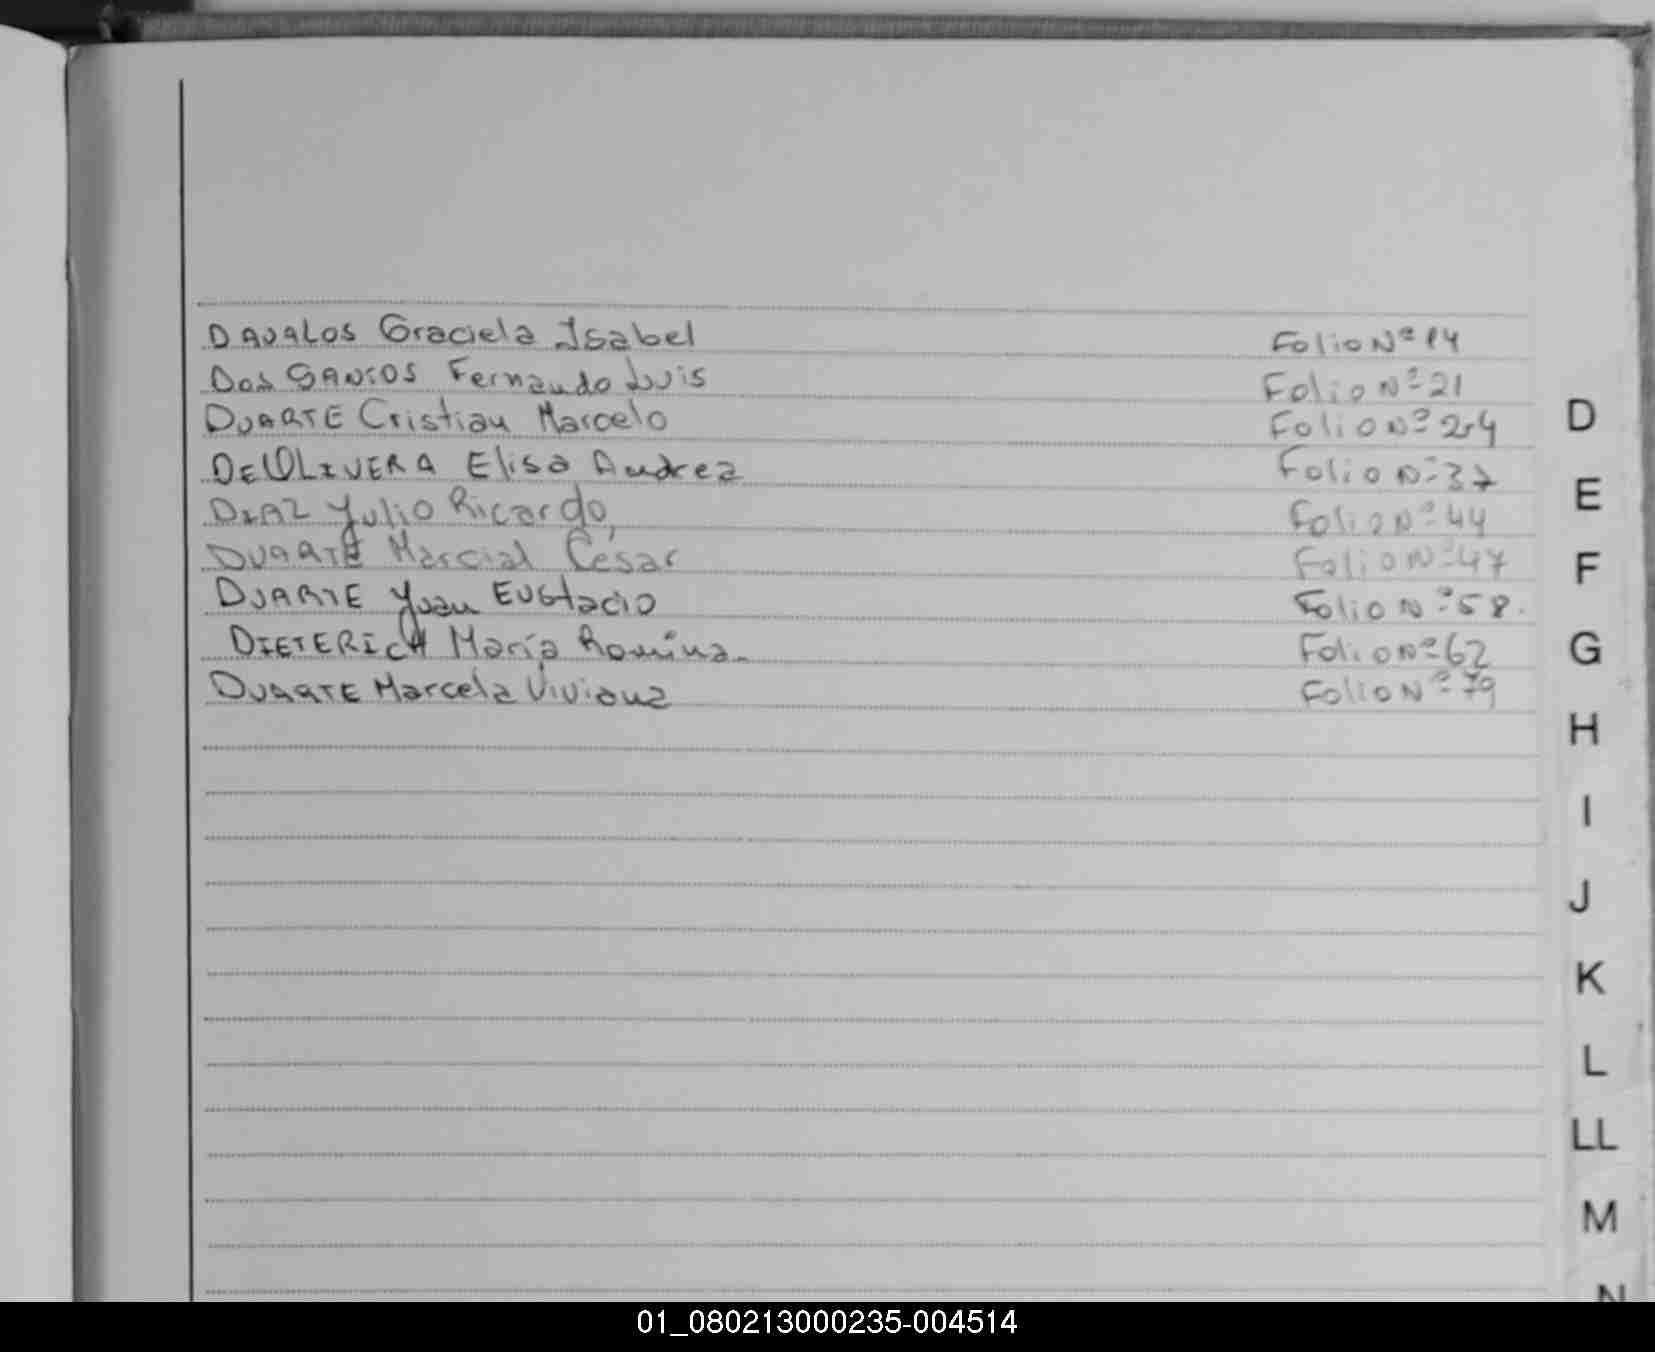 DAVALOS Graciela Isabel Folio Nº 14
Dos SANTOS Fernando Luis Folio Nº 21
DUARTE Cristian Marcelo Folio Nº 24
DE OLIVERA Elisa Andrea Folio Nº 37
DIAZ Yulio Ricardo Folio Nº 44
DUARTE Marcial César Folio Nº 47
DUARTE Yuan EUStacio Folio Nº 58.
DIETERICH María Romina. Folio Nº 62
DUARTE Marcela Viviana Folio Nº 79
D
E
F
G
H
I
J
K
L
LL
M
N
01_080213000235-004514